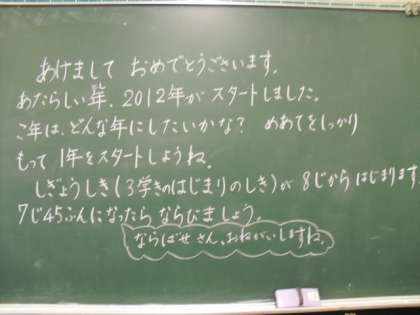 あけまして おめでとうございます。
あたらしい年、2012年が スタートしました。
こ年は、どんな年にしたいかな? めあてをしっかり
もって 1年をスタートしようね。
しぎょうしき(3学きのはじまりのしき)が 8じから はじまります
7じ45ふんになったら ならびましょう。
ならばせ さん、おねがいしますね。